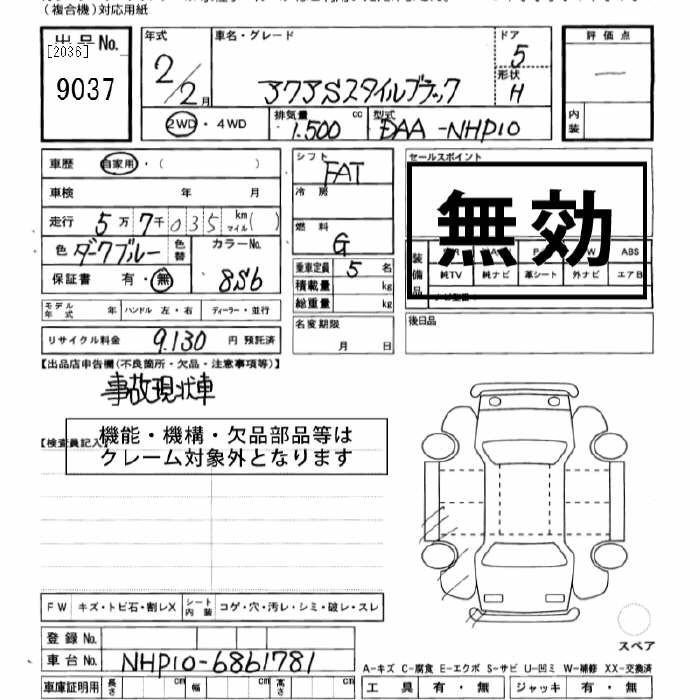 (複合機)対応用紙
出品No.
[2036]
9037
年式
2/2月
車名・グレード
アクアSスタイルブラック
ドア
5
形状
H
評価点
―
内装
2WD・4WD
排気量 cc
1.500
型式
DAA-NHP10
車歴 自家用・( )
車検 年 月
走行 5万7千035 km マイル( )
色 ダークブルー 色替 カラーNo. 8S6
保証書 有・無
モデル年式 年 ハンドル 左・右 ディーラー・並行
リサイクル料金 9.130 円 預託済
シフト
FAT
冷房
燃料
G
乗車定員 5 名
積載量 kg
総重量 kg
名変期限
月 日
セールスポイント
無効
装備品
ABS
純TV 純ナビ 革シート 外ナビ エアB
後日品
【出品店申告欄(不良箇所・欠品・注意事項等)】
事故現状車
【検査員記入】
機能・機構・欠品部品等は
クレーム対象外となります
FW キズ・トビ石・割レX シート内装 コゲ・穴・汚レ・シミ・破レ・スレ
登録No.
車台No. NHP10-6861781
車庫証明用 長さ cm 幅 cm 高さ cm
スペア
A-キズ C-腐食 E-エクボ S-サビ U-凹ミ W-補修 XX-交換済
工具 有・無 ジャッキ 有・無